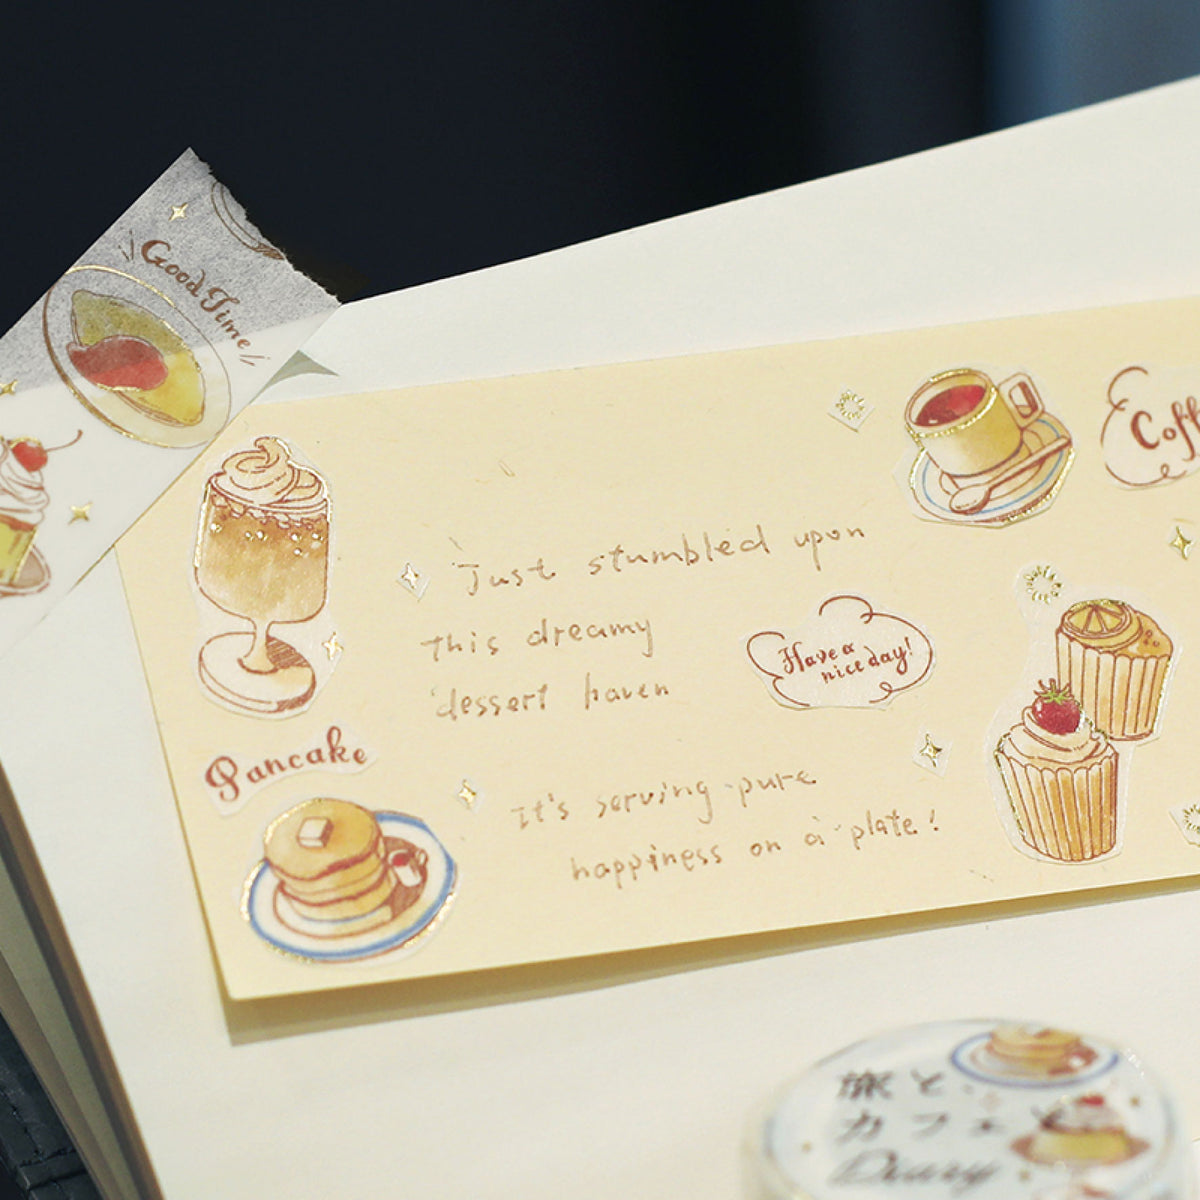 Good Time
Coff
Just stumbled upon
this dreamy
dessert haven
Have a
nice day!
Pancake
It's serving pure
happiness on a plate!
旅と、
カフェと
Diary